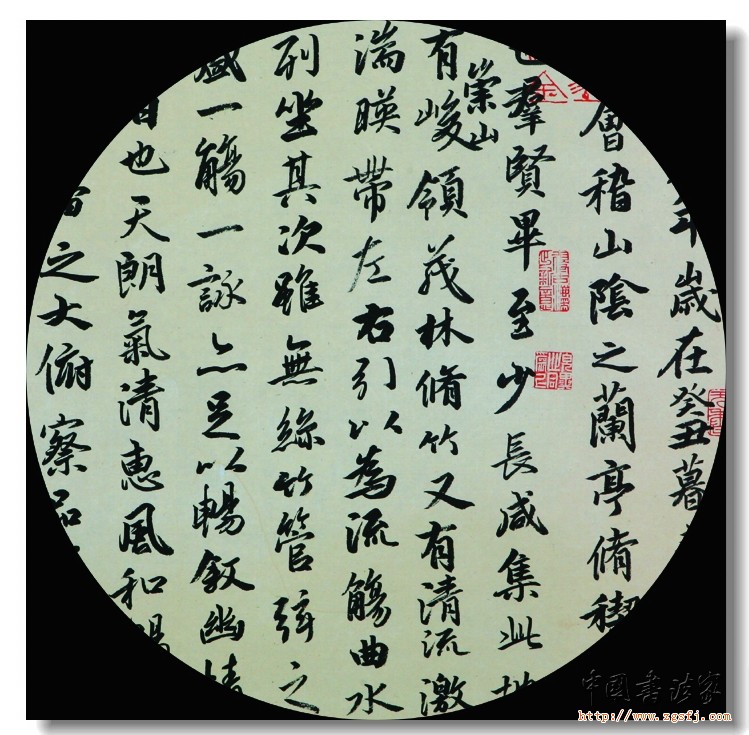 年歲在癸丑暮
會稽山陰之蘭亭脩禊
也羣賢畢至少長咸集此地
有崇山峻領茂林脩竹又有清流激
湍暎帶左右引以為流觴曲水
列坐其次雖無絲竹管弦之
盛一觴一詠亦足以暢敘幽情
日也天朗氣清惠風和暢
宙之大俯察品
中国书法家
http://www.zgsfj.com